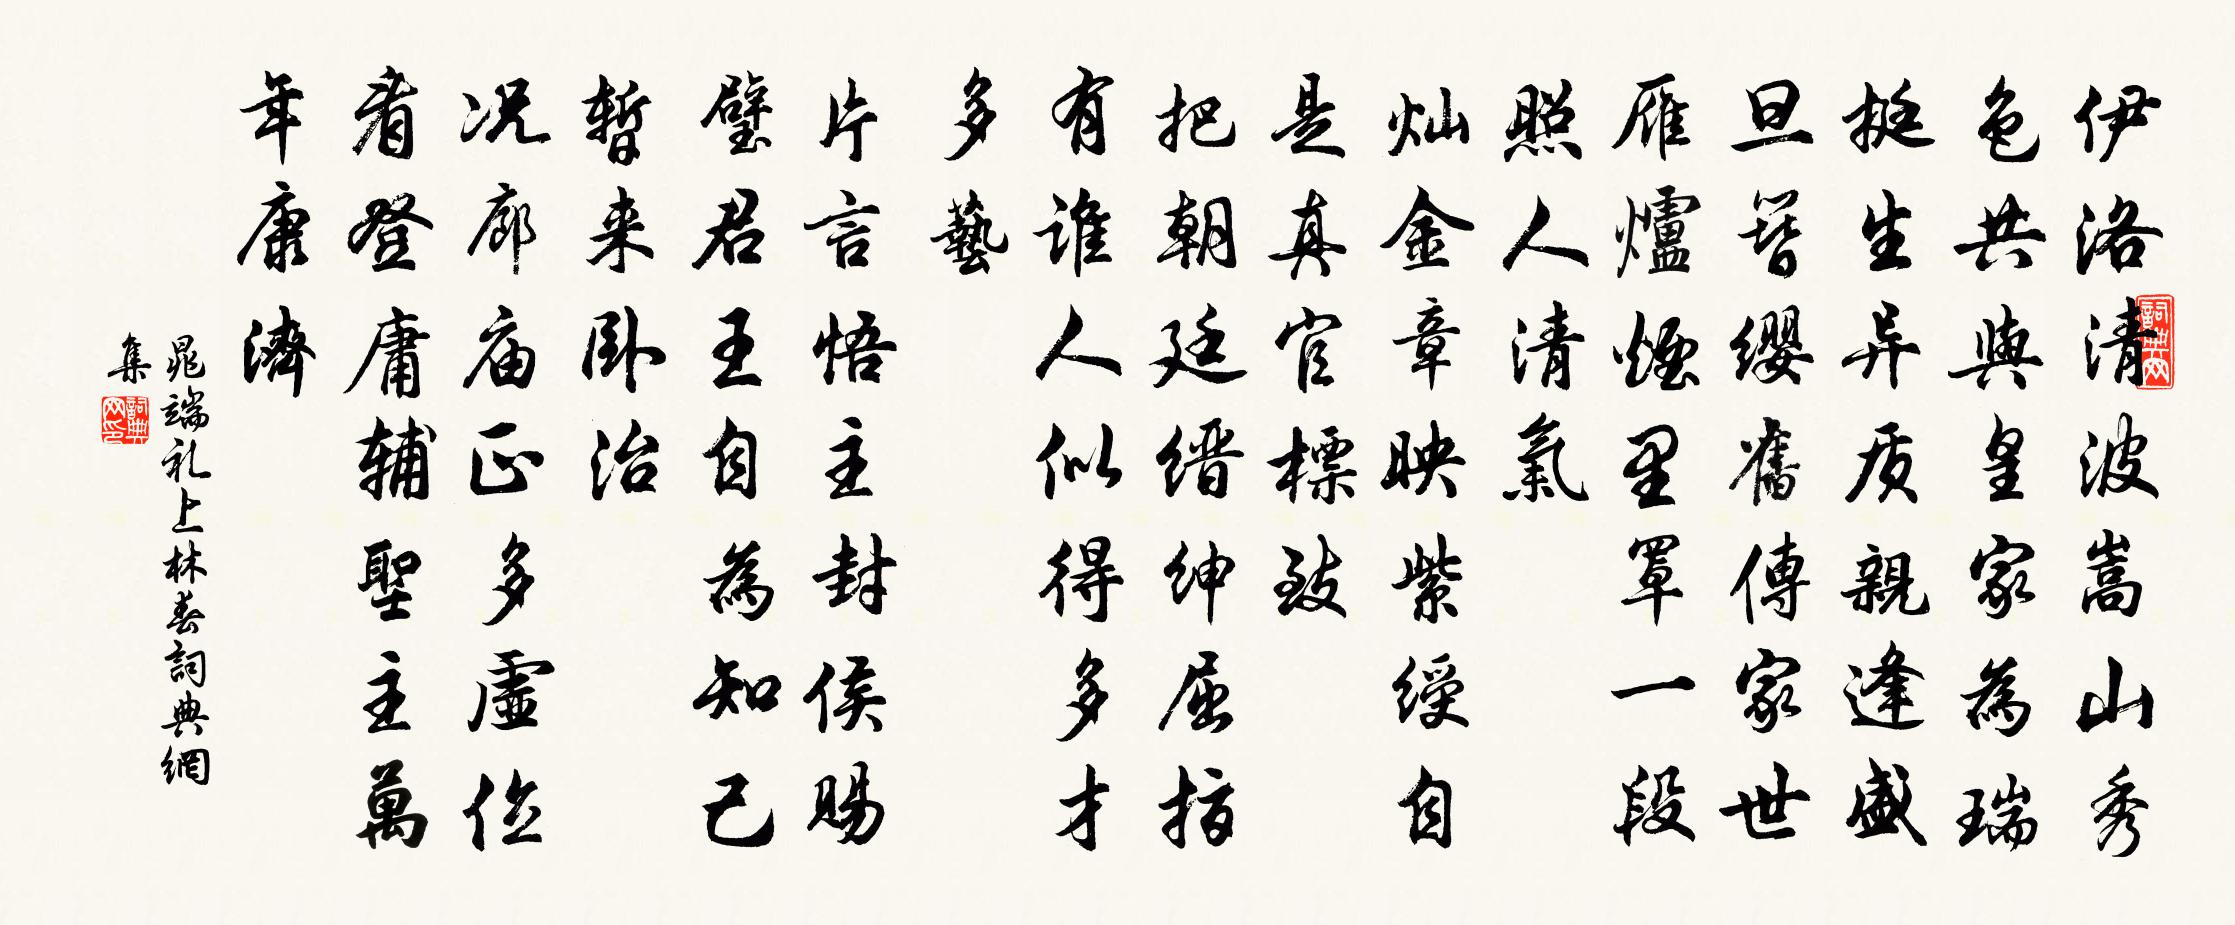 伊洛清波嵩山秀
色共與皇家為瑞
挺生异质親逢盛
旦簪纓舊傳家世
雁爐煙里罩一段
照人清氣
灿金章映紫綬自
是真官標致
把朝廷缙紳屈指
有谁人似得多才
多藝
片言悟主封侯賜
璧君王自為知己
暫来卧治
况廊庙正多虛位
看登庸辅聖主萬
年康濟
晁端礼上林春詞典網
集
詞典网
詞典网印